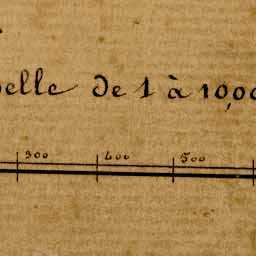 elle de 1 à 10,00
300 400 500